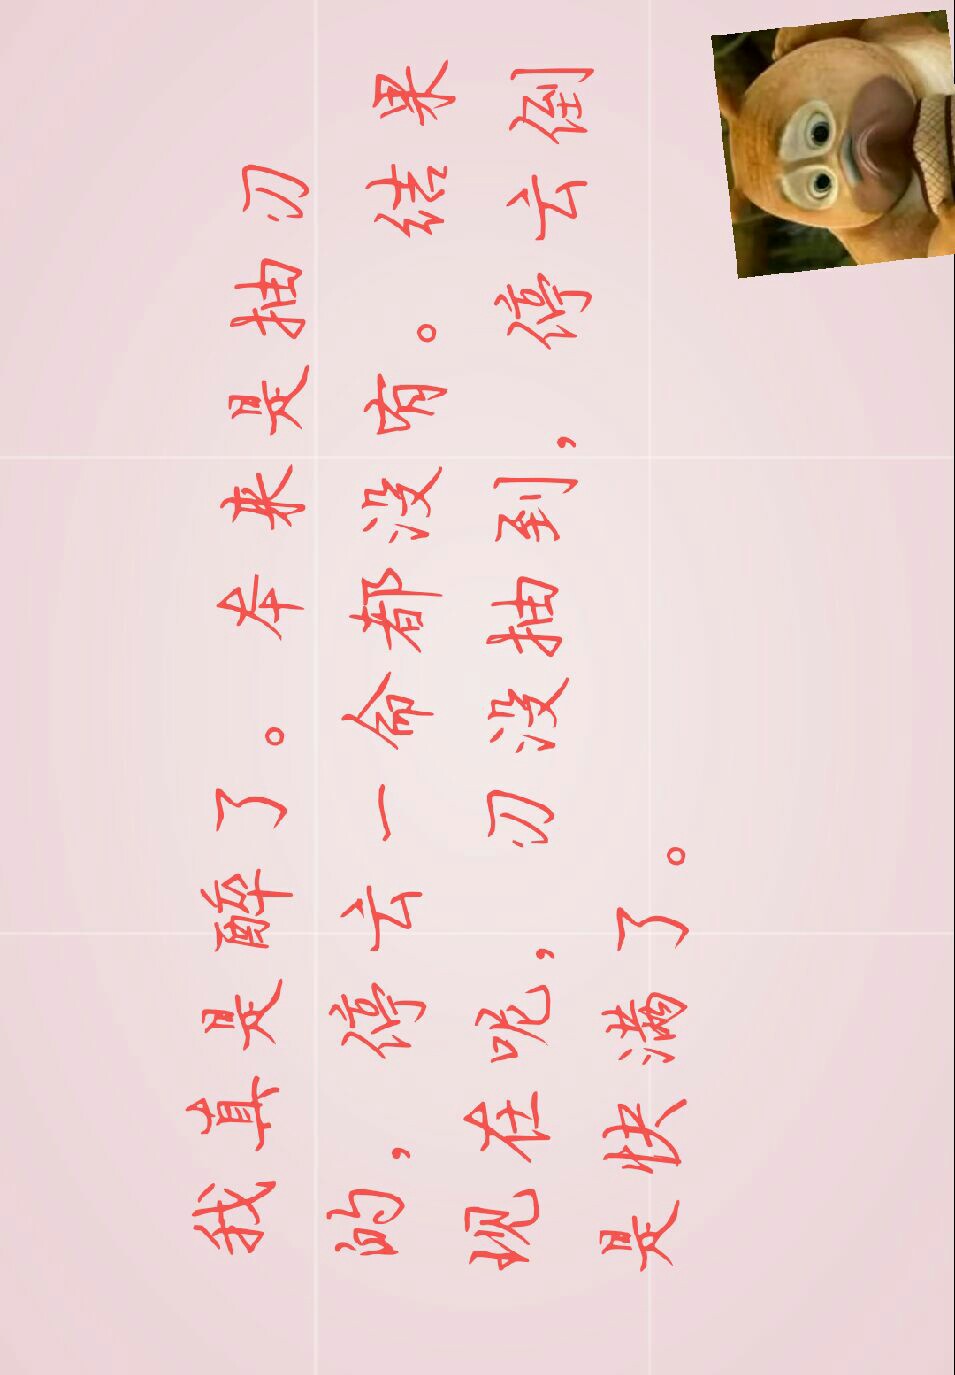 我真是醉了。本来是抽刃
的，停云一命都没有。结果
现在呢，刃没抽到，停云倒
是快满了。